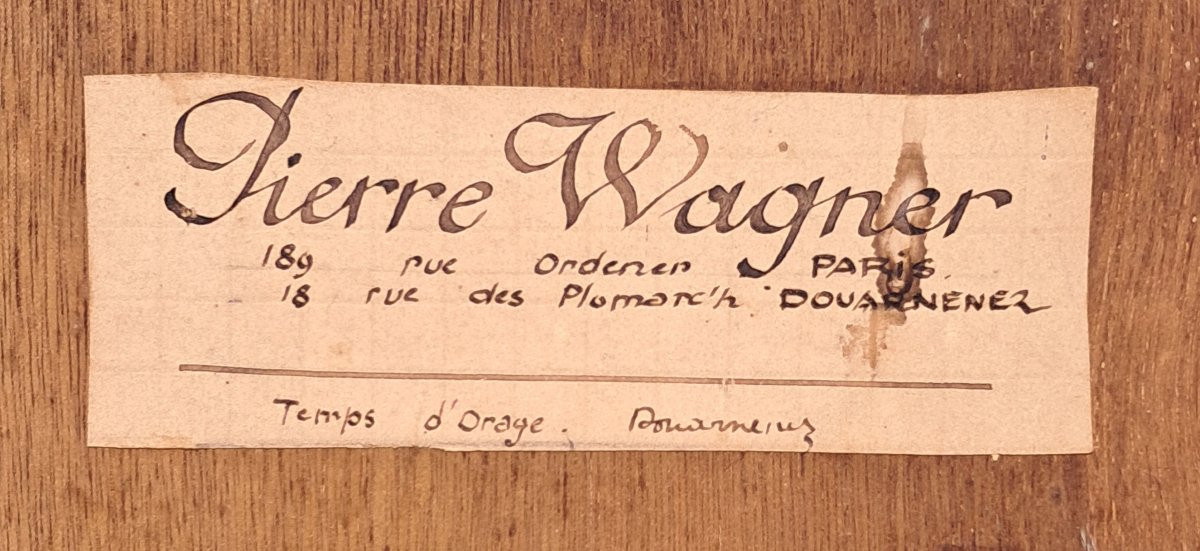 Pierre Wagner
189 rue Ordener PARIS.
18 rue des Plomarc'h DOUARNENEZ
Temps d'Orage. Douarnenez